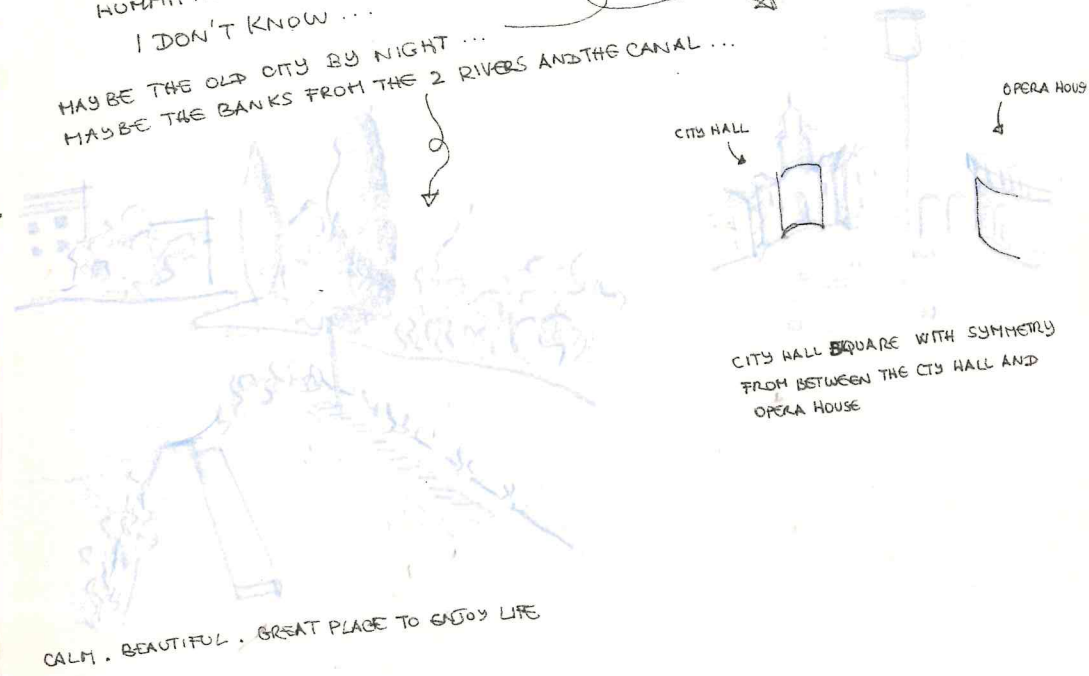 I DON'T KNOW ...
MAYBE THE OLD CITY BY NIGHT ...
MAYBE THE BANKS FROM THE 2 RIVERS AND THE CANAL ...
CITY HALL
OPERA HOUS
CITY HALL SQUARE WITH SYMMETRY
FROM BETWEEN THE CTY HALL AND
OPERA HOUSE
CALM . BEAUTIFUL . GREAT PLACE TO ENJOY LIFE